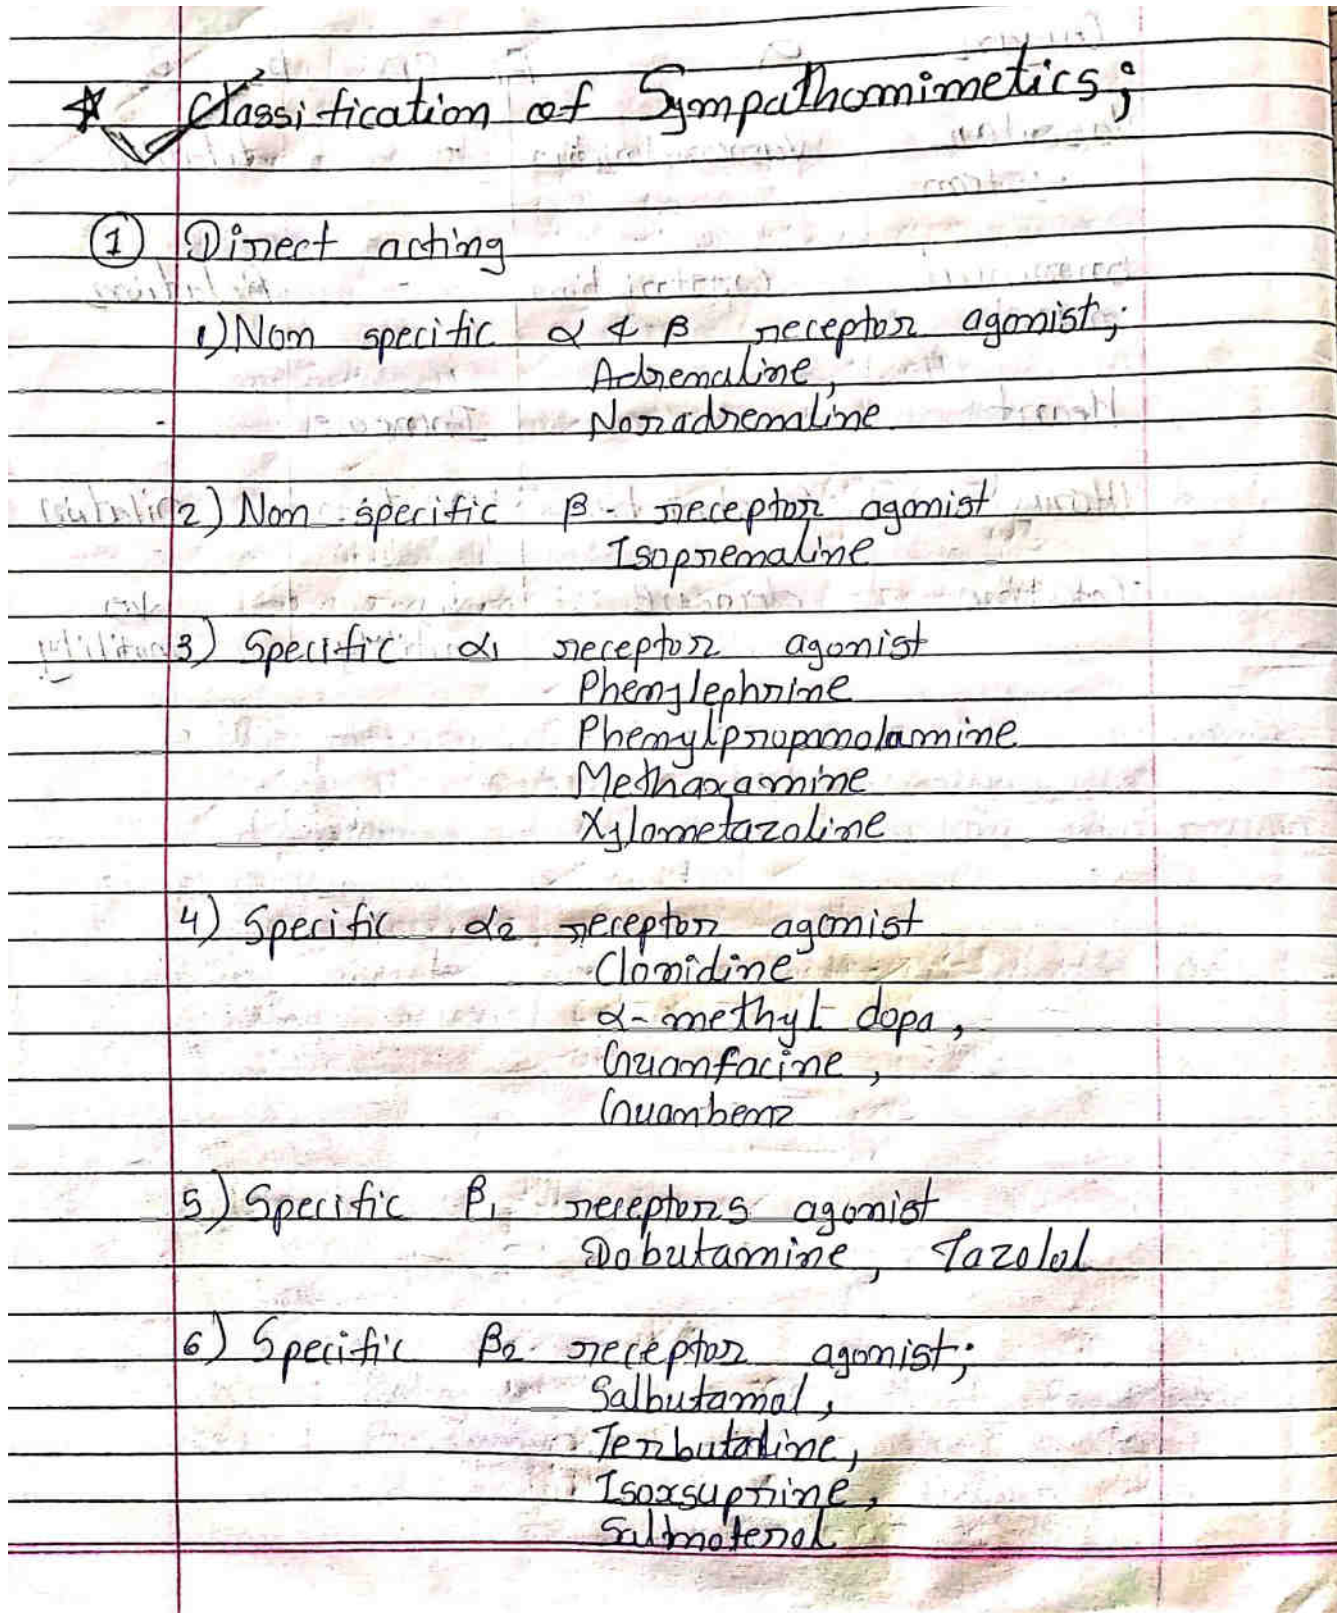 Classification of Sympathomimetics;
① Direct acting
1) Non specific α & β receptor agonist;
Adrenaline,
Noradrenaline
2) Non specific β- receptor agonist
Isoprenaline
3) Specific α1 receptor agonist
Phenylephrine
Phenylpropanolamine
Methoxamine
Xylometazoline
4) Specific α2 receptor agonist
Clonidine
α-methyl dopa,
Guanfacine,
Guanbenz
5) Specific β1 receptors agonist
Dobutamine, Tazolol
6) Specific β2 receptor agonist;
Salbutamol,
Terbutaline,
Isoxsuprine,
Salmeterol